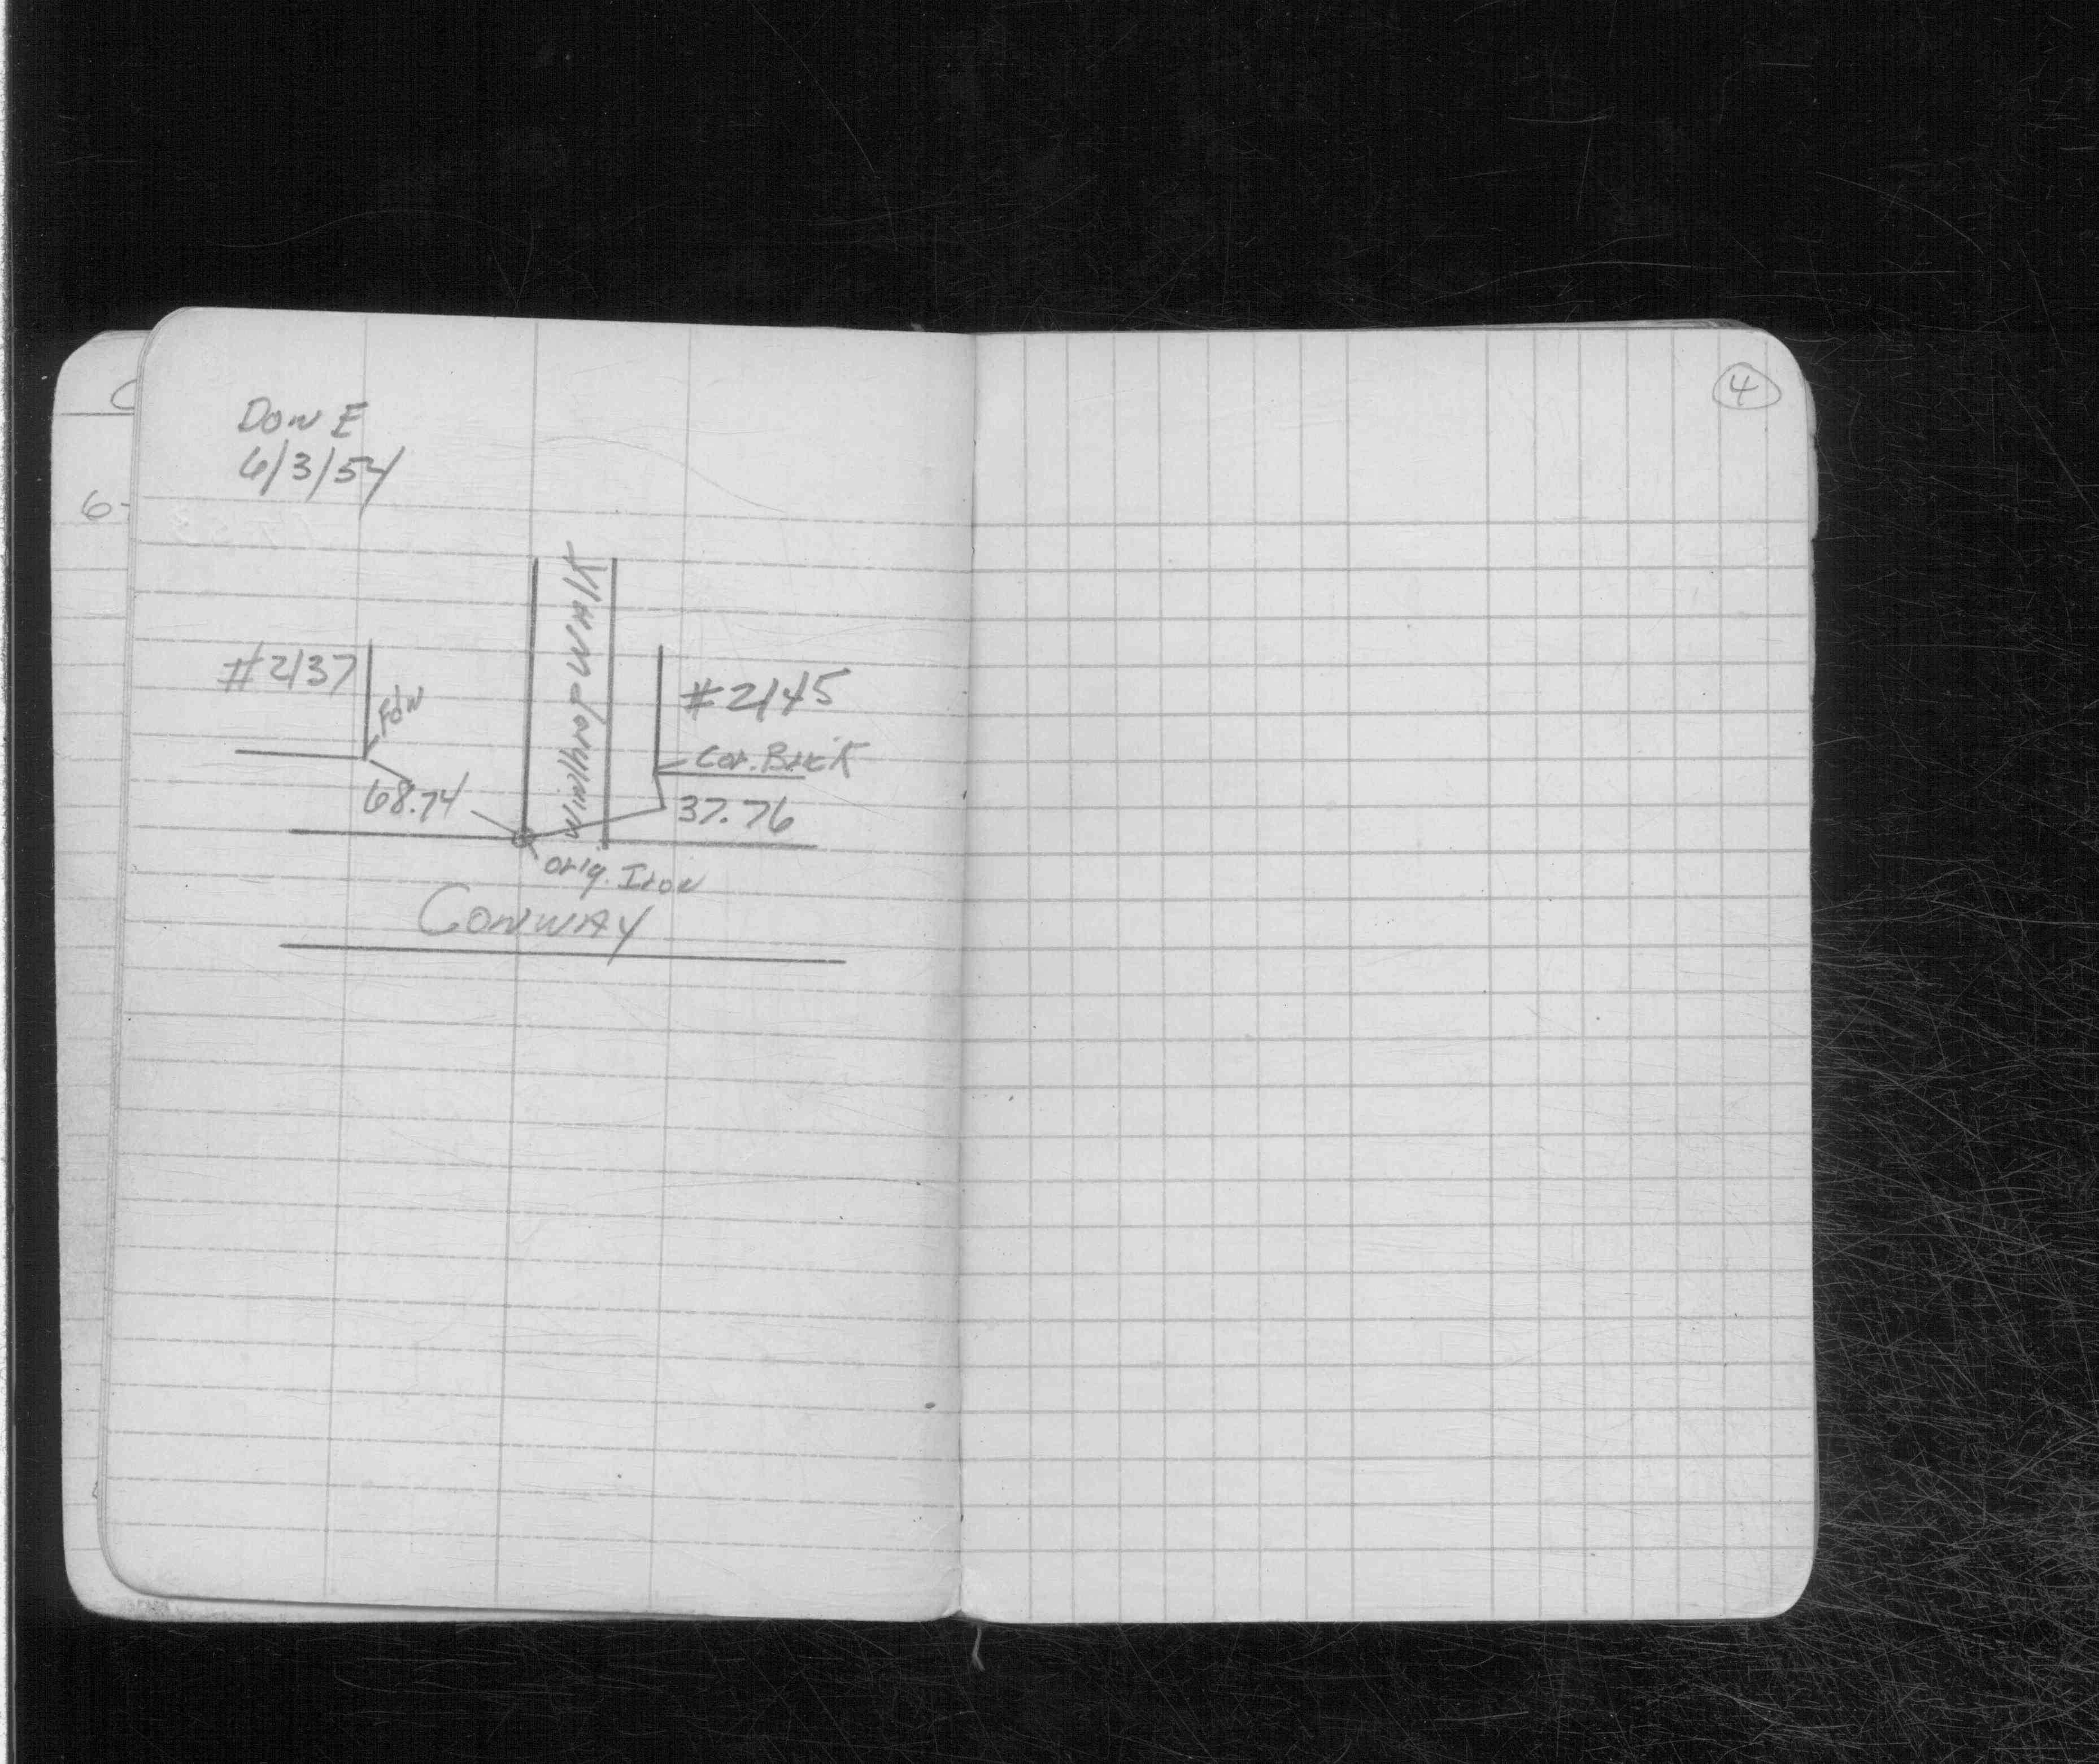 4
Don E
6/3/54
Winthrop Walk
#2137
Fdn
#2145
Cor. Brick
68.74
37.76
orig. Iron
Conway
6-